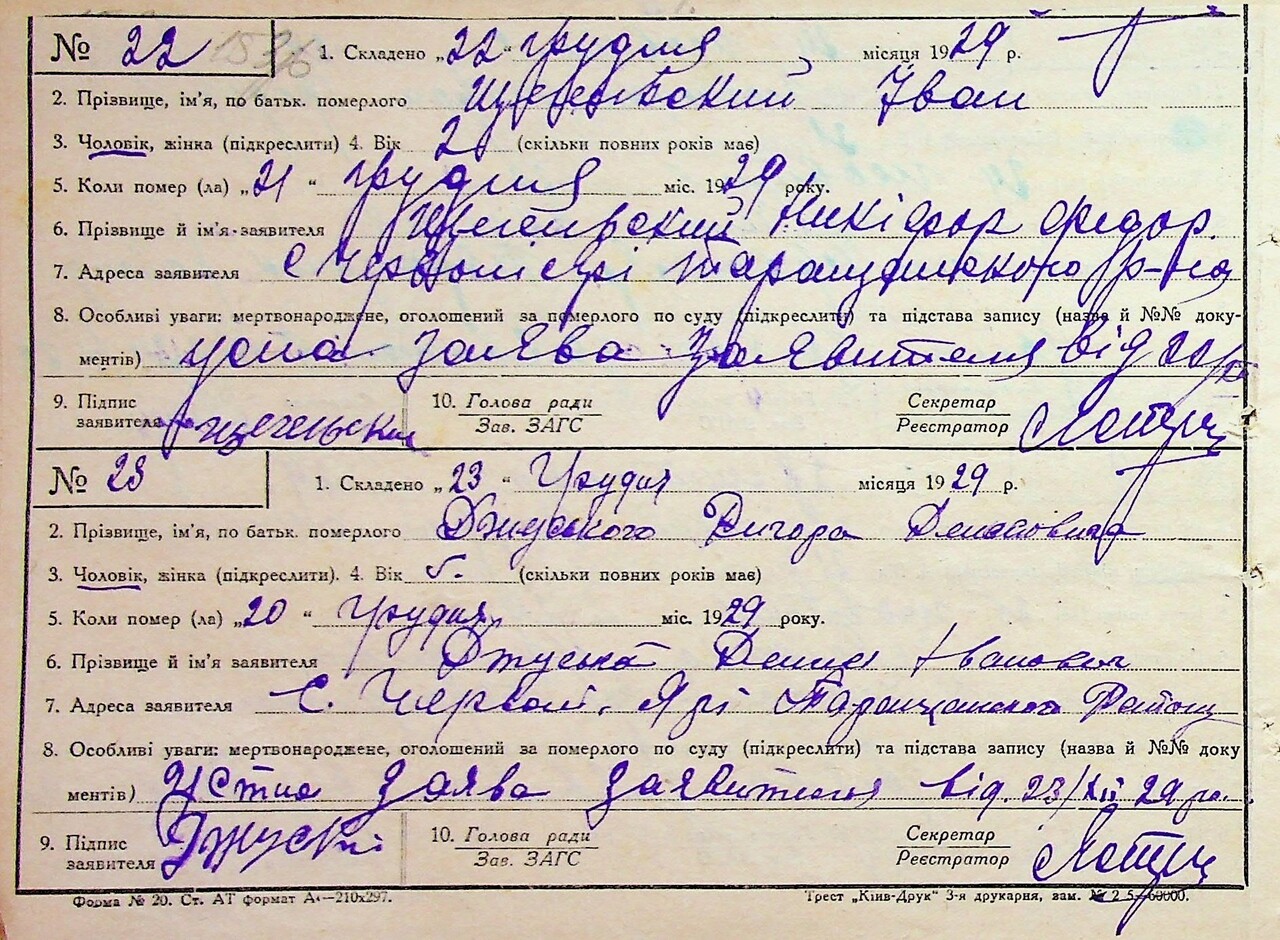 № 22 1. Складено „22“ грудня місяця 1929 р.
2. Прізвище, ім'я, по батьк. померлого Іван
3. Чоловік, жінка (підкреслити) 4. Вік 2 (скільки повних років має)
5. Коли помер (ла) „21“ грудня міс. 1929 року.
6. Прізвище й ім'я заявителя Никіфор Федор.
7. Адреса заявителя с Таращанського р-на
8. Особливі уваги: мертвонароджене, оголошений за померлого по суду (підкреслити) та підстава запису (назва й №№ доку-
ментів) заява заявителя від
9. Підпис 10. Голова ради Секретар
заявителя Зав. ЗАГС Реєстратор
№ 23 1. Складено „23“ Грудня місяця 1929 р.
2. Прізвище, ім'я, по батьк. померлого Джуського Денисовича
3. Чоловік, жінка (підкреслити). 4. Вік 5. (скільки повних років має)
5. Коли помер (ла) „20“ Грудня міс. 1929 року.
6. Прізвище й ім'я заявителя Денис Іванович
7. Адреса заявителя С. Ярі Таращанського Району
8. Особливі уваги: мертвонароджене, оголошений за померлого по суду (підкреслити) та підстава запису (назва й №№ доку
ментів) Устна Заява Заявителя від. 23/XII 29 р.
9. Підпис 10. Голова ради Секретар
заявителя Зав. ЗАГС Реєстратор
Форма № 20. Ст. АТ формат А4—210х297. Трест „Київ-Друк“ 3-я друкарня, зам. № 2 5—60000.